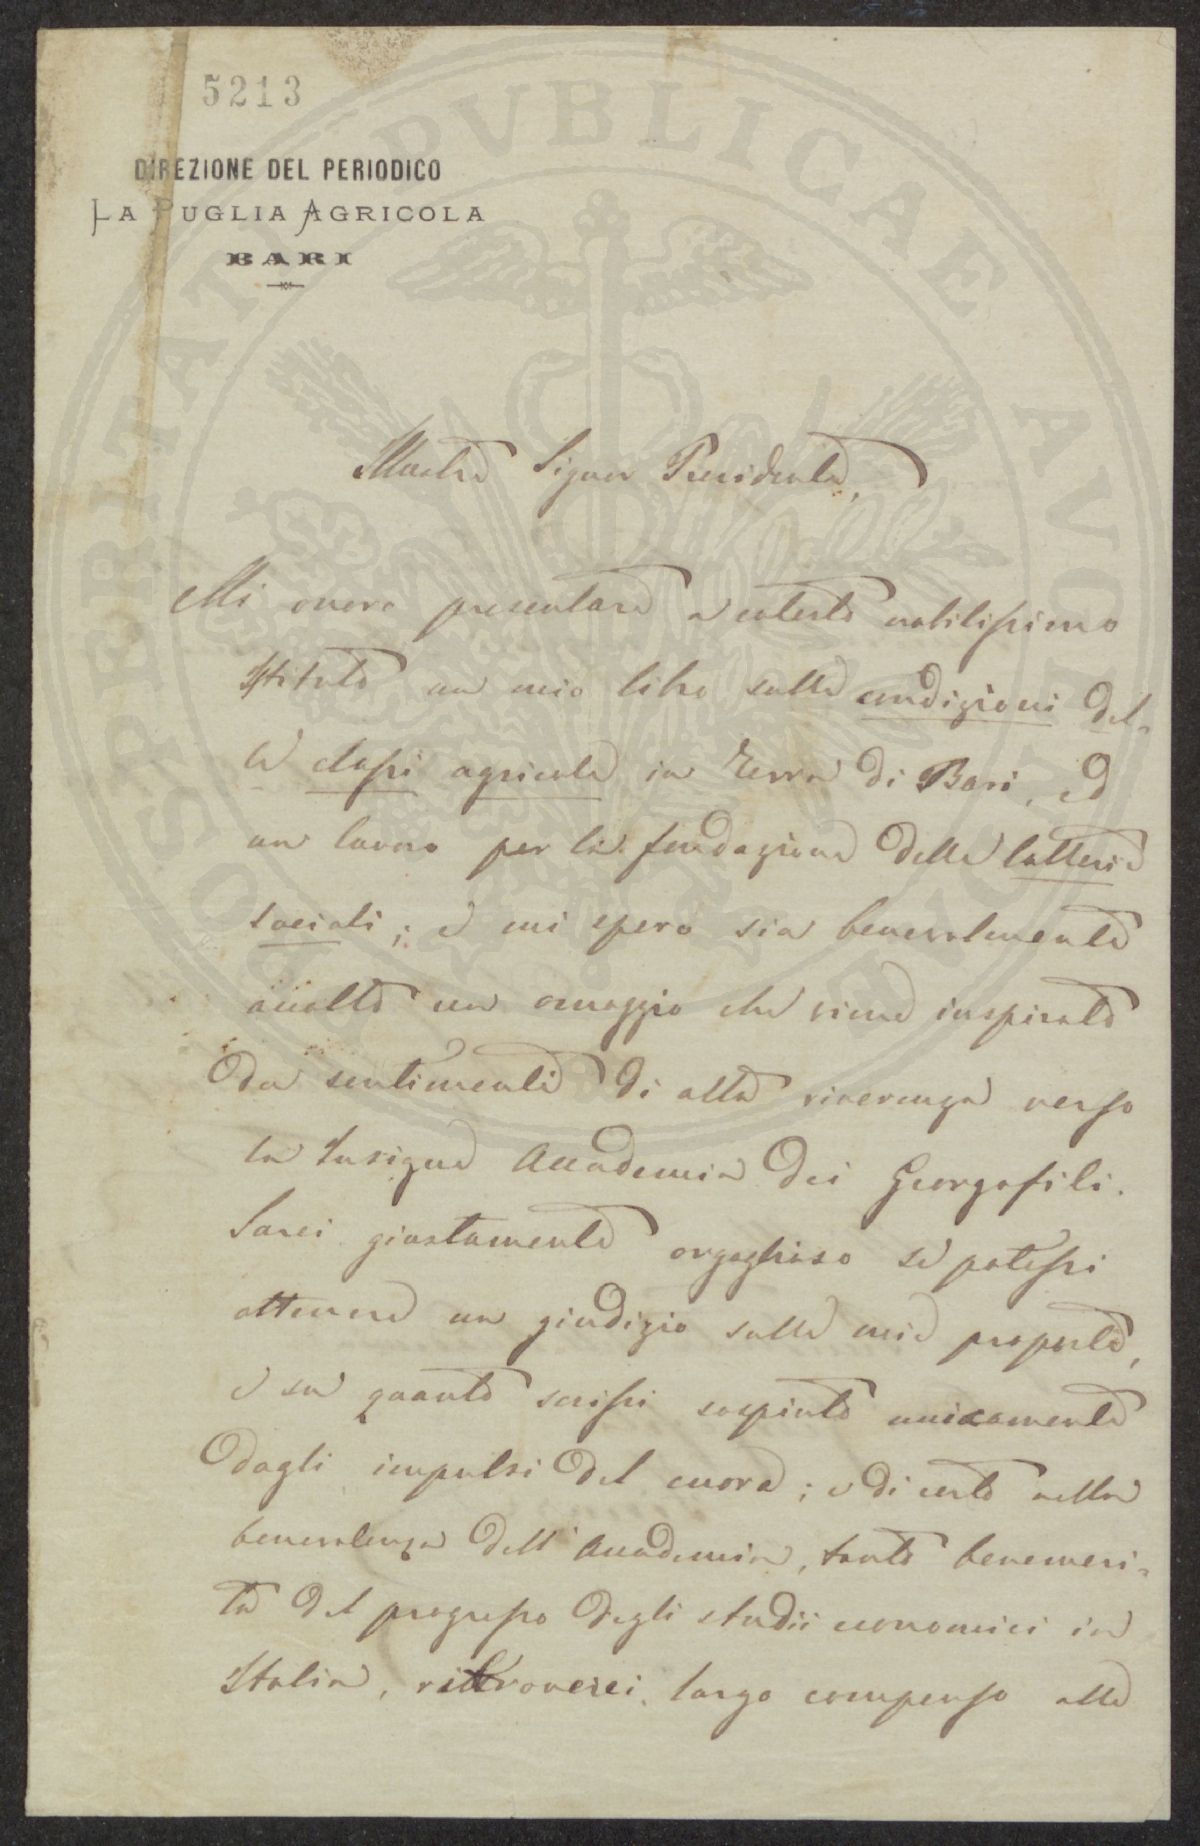 5213
DIREZIONE DEL PERIODICO
LA PUGLIA AGRICOLA
BARI
PROSPERITATI PVBLICAE AVGENDAE
Illustre Signor Presidente,
Mi onoro presentare a cotesto nobilissimo
Istituto un mio libro sulle condizioni del-
le classi agricole in Terra di Bari, ed
un lavoro per la fondazione delle latterie
sociali; e mi spero sia benevolmente
accolto un omaggio che viene inspirato
da sentimenti di alta riverenza verso
la Insigne Accademia dei Georgofili.
Sarei giustamente orgoglioso se potessi
ottenere un giudizio sulle mie proposte,
e su quanto scrissi sospinto unicamente
dagli impulsi del cuore; e di certo nella
benevolenza dell'Accademia, tanto benemeri-
ta del progresso degli studii economici in
Italia, ritroverei largo compenso alle